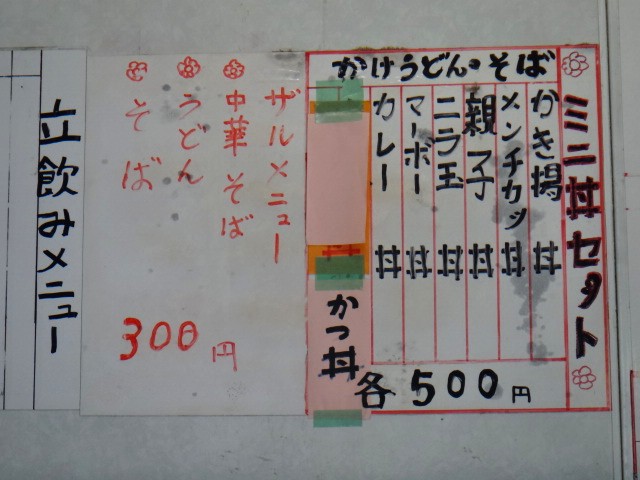 かけうどん・そば
ミニ丼セット
かき揚丼
メンチカツ丼
親子丼
ニラ玉丼
マーボー丼
カレー丼
かつ丼
各500円
ザルメニュー
中華そば
うどん
そば
300円
立飲みメニュー